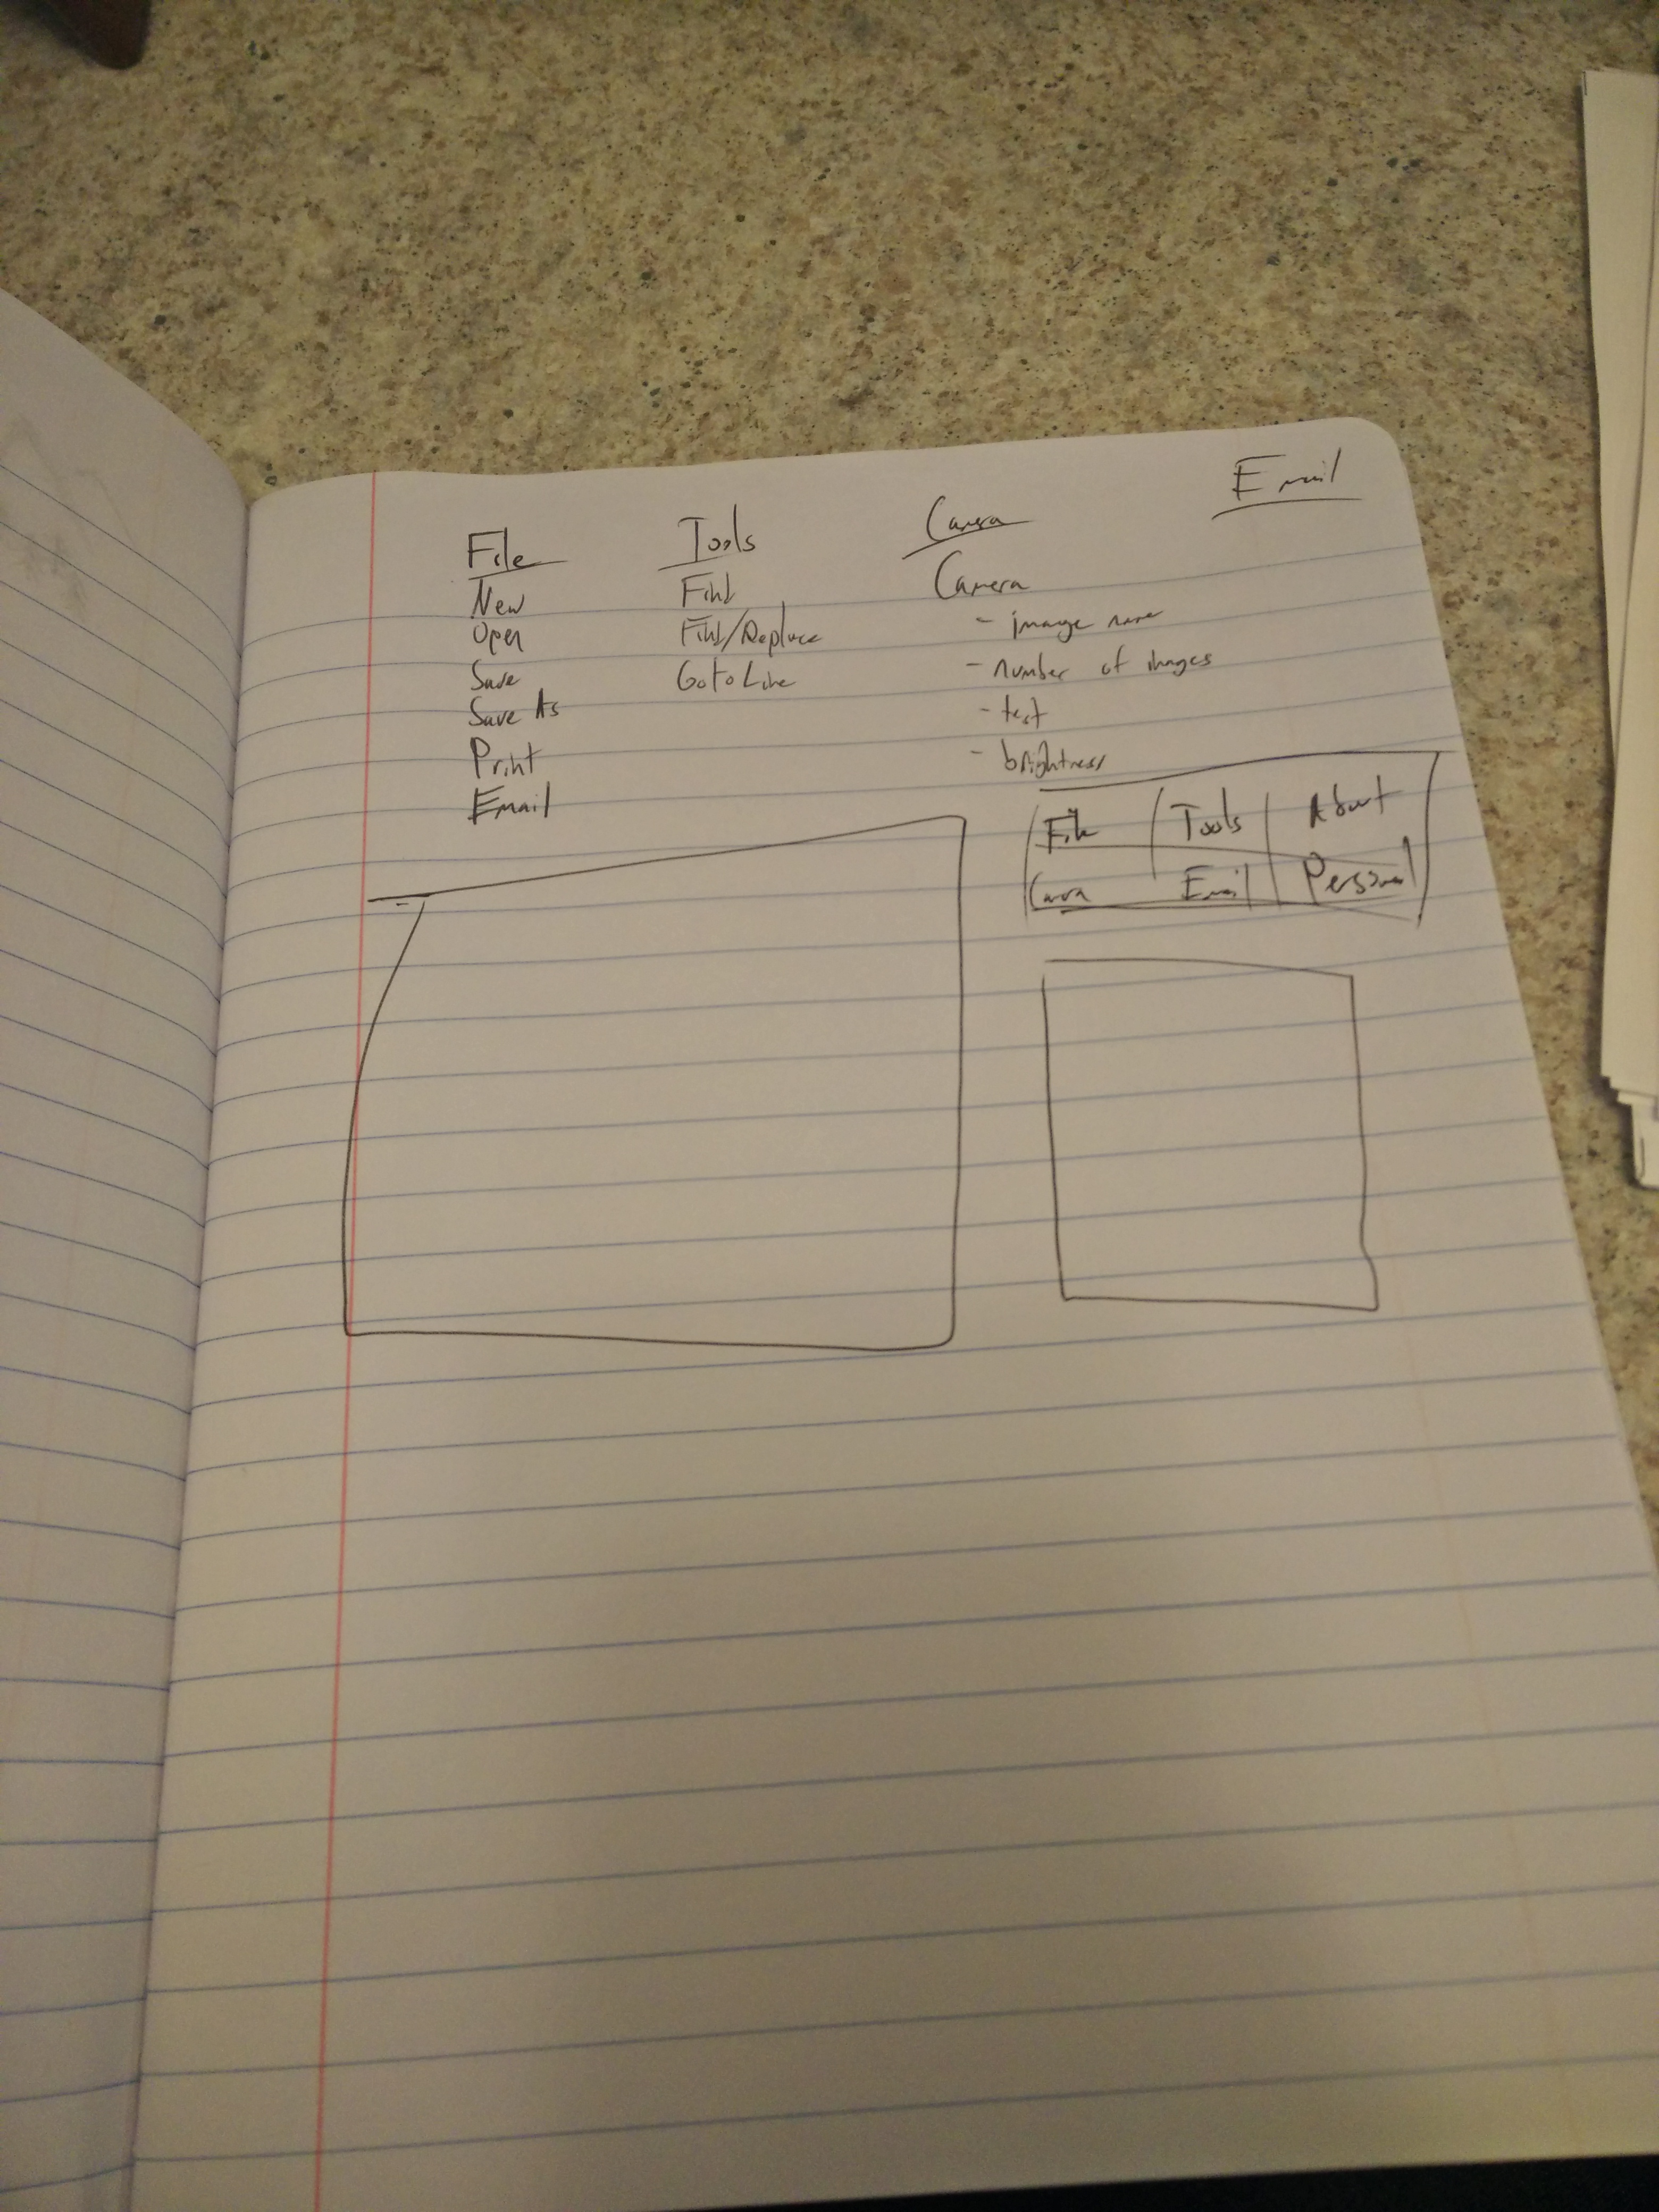 Email
File
New
Open
Save
Save As
Print
Email
Tools
Find
Find/Replace
GotoLine
Camera
Camera
- image name
- number of images
- test
- brightness
File Tools About
Camera Email Personal